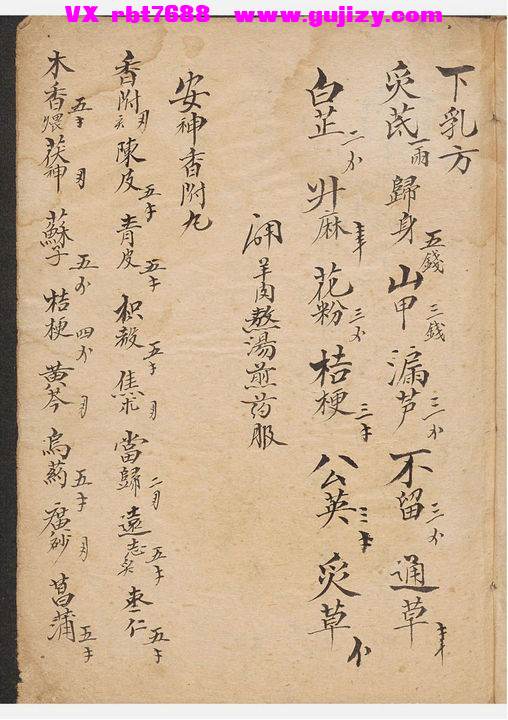 VX rbt7688 www.gujizy.com
下乳方
炙芪一兩 歸身五錢 山甲三錢 漏芦三 不留三 通草
白芷二 升麻 花粉三 桔梗三 公英三 炙草
用羊肉熬湯煎药服
安神香附丸
香附 陳皮五 青皮五 枳殼五 焦术 當歸二 遠志五 枣仁五
木香煨五 茯神 蘇子五 桔梗四 黄芩 烏药五 廣砂 菖蒲五